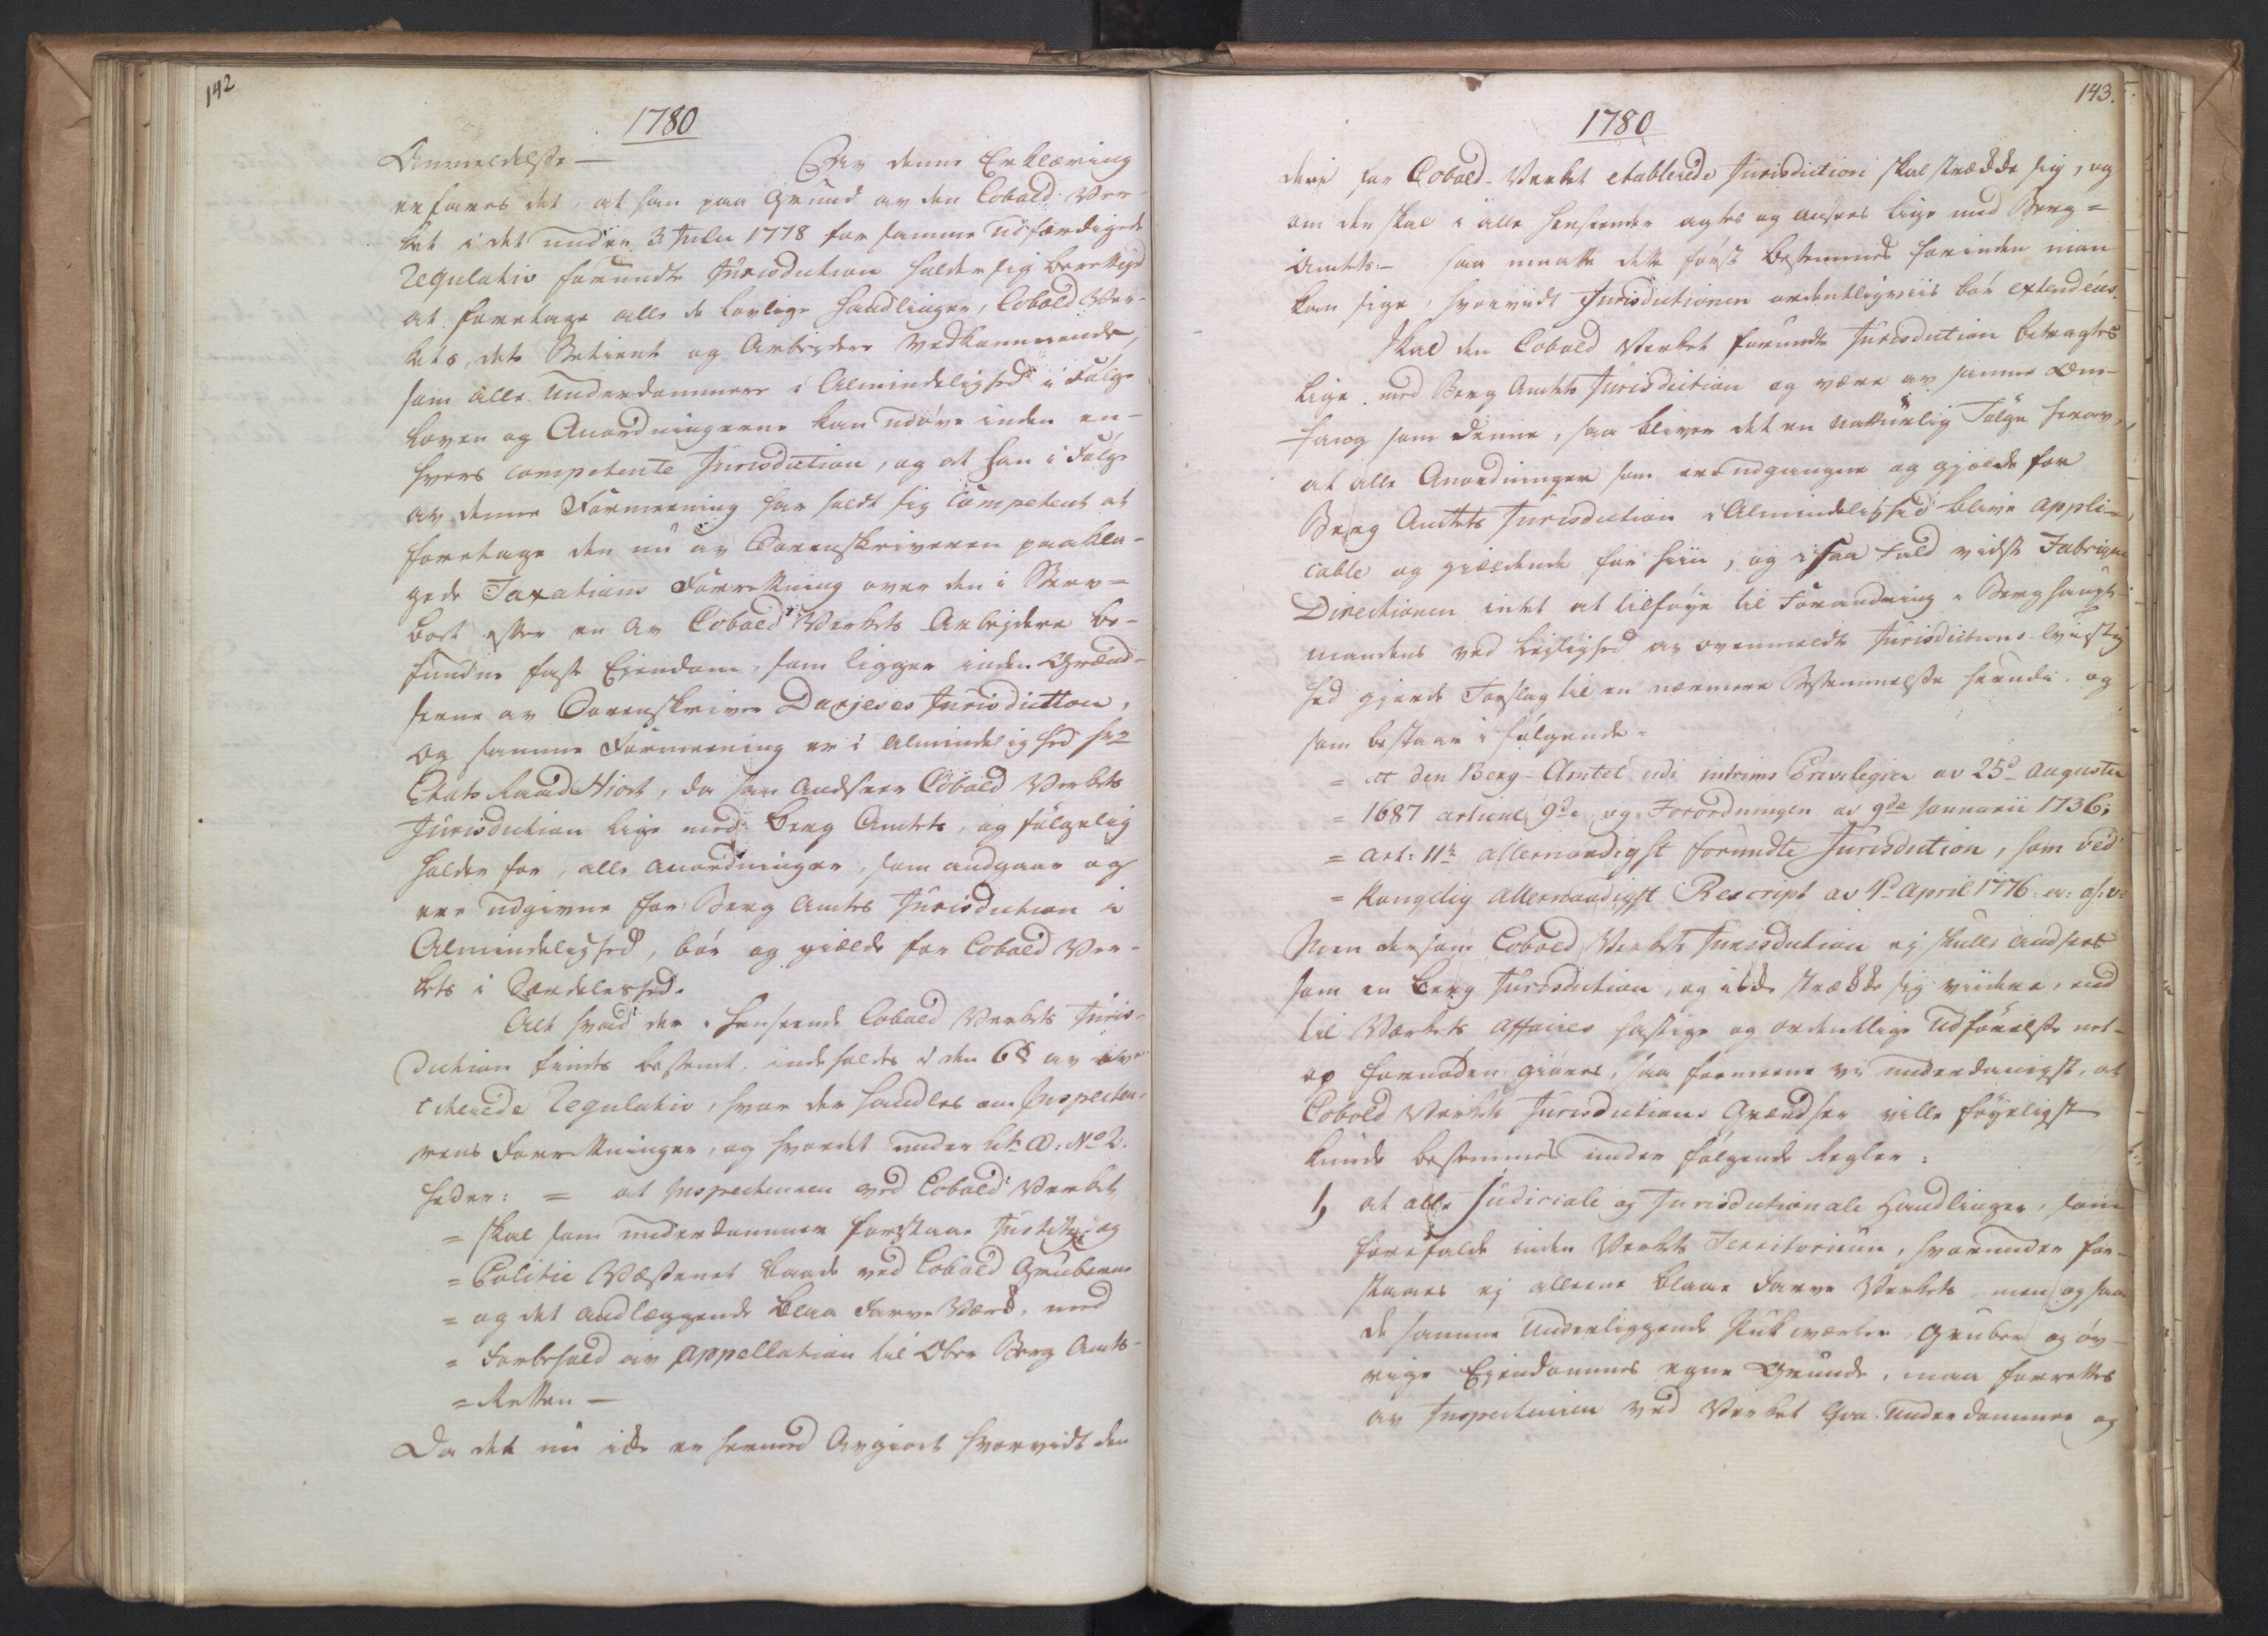 142
1780
Anmeldelsse — Av denne Erklæring
erfares det, at han paa Grund av den Cobold Ver-
ket i det under 3 Julii 1778 for samme udfærdigede
Regulativ forundte Jurisdiction holder sig berettiget
at foretage alle de lovlige Handlinger, Cobold Ver-
kets, dets Betiente og Arbejdere vedkommende,
som alle Underdommere i Almindelighed i Følge
Loven og Anordningerne kan udøve inden en-
hvers competente Jurisdiction, og at han i Følge
av denne Formeening har holdt sig Competent at
foretage den nu av Sorenskriveren paakla-
gede Taxations Forretning over den i Sterv-
boet efter en av Cobold Verkets Arbejdere be-
fundne faste Ejendom, som ligger inden Grænd-
serne av Sorenskriver Darjeses Jurisdiction,
og samme Formeening er i Almindelighed Hr
Etats Raad Hiort, da han andseer Cobold Verkets
Jurisdiction lige med Berg Amtets, og følgelig
holder for, alle Anordninger, som andgaar og
ere udgivne for Berg Amtets Jurisdiction i
Almindelighed, bør og gielde for Cobold Ver-
kets i Særdeleshed.
Alt hvad der i Henseende Cobold Verkets Juris-
diction findes bestemt, indeholdes i den 6 § av
citerede Regulativ, hvor der handles om Inspecteu-
rens Forretninger, og hvor det under Litr. A: No 2.
heder: = at Inspecteuren ved Cobold Verket
= skal som Underdommer forestaae Justits og
= Politie Væsenet baade ved Cobold Gruberne
= og det andlæggende Blaa Farve Værk, med
= Forbehold av Appellation til Ober Berg Amts-
= Retten —
Da det nu ikke er hermed Avgiort hvorvidt den
143.
1780
deri for Cobold-Verket etablerede Jurisdiction skal strække sig, og
om den skal i alle Henseender agtes og ansees lige med Berg=
Amtets:— saa maatte dette først bestemmes forinden man
kan sige, hvorvidt Jurisdictionen ordentligviis bør extenderes.
Skal den Cobold Verket forundte Jurisdiction betragtes
lige med Berg Amtets Jurisdiction og være av samme Om-
fang som denne, saa bliver det en naturlig Følge herav,
at alle Anordninger som ere udgangne og gjælde for
Berg Amtets Jurisdiction i Almindelighed blive appli-
cable og giældende for hiin, og i saa Fald vidste Fabriqve
Directionen intet at tilføye til Forandring i Berghaupt-
mandens ved Leylighed av ovenmeldte Jurisdictions-Tvistig
hed giorde Forslag til en nærmere Bestemmelse herudi, og
som bestaar i følgende =
= at den Berg-Amtet udi interims Privilegier av 25d Augustii
= 1687 articul 9de og Forordningen av 9de Januarii 1736:
= art: 11te allernaadigst forundte Jurisdiction, som ved
= Kongelig allernaadigst Rescript av 4d April 1776
Men dersom Cobold Verkets Jurisdiction ej skulle andsees
som en Berg Jurisdiction, og ikke strække sig viidere, end
til Værkets Affaires hastige og ordentlige Udførelse net-
op fornøden giøres, saa formeene vi underdanigst, at
Cobold Verkets Jurisdictions Grændser ville føyeligst
kunde bestemmes under følgende Regler:
1, at alle Judiciale og Jurisdictionale Handlinger, som
forefalde inden Verkets Territorium, hvorunder for-
staaes ej alleene Blaae Farve Verkets, men og saa
de samme Underliggende Pukværker, Gruber og øv-
rige Ejendommes egne Grunde, maa forrettes
av Inspecteuren ved Verket qva Underdommer og